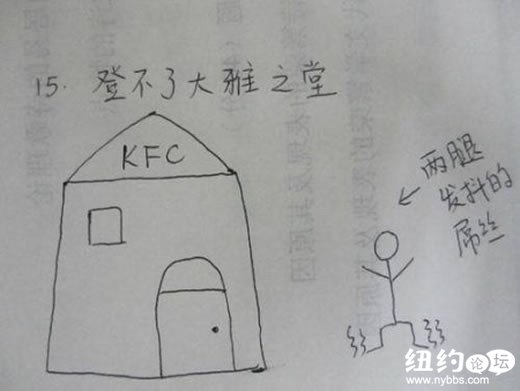 15. 登不了大雅之堂
KFC
两腿
发抖的
屌丝
纽约论坛
www.nybbs.com